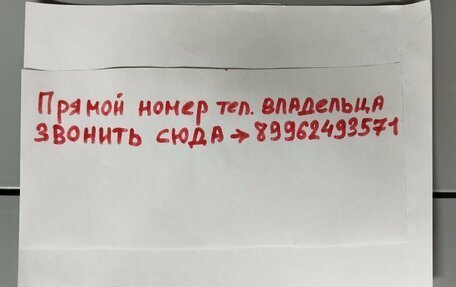 Прямой номер тел. владельца
звонить сюда → 89962493571